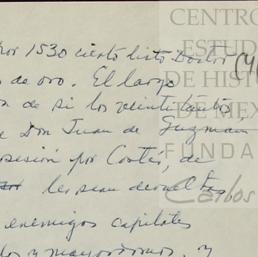 por 1530 cierto listo Doctor
s de oro. El largo
n de si los veintitantos,
e Don Juan de Guzmán
posesión por Cortés, de
les sean devueltas
enemigos capitales
dos y mayordomos, y
CENTRO
ESTUD
DE HISTO
DE MÉX
FUNDA
Carlos